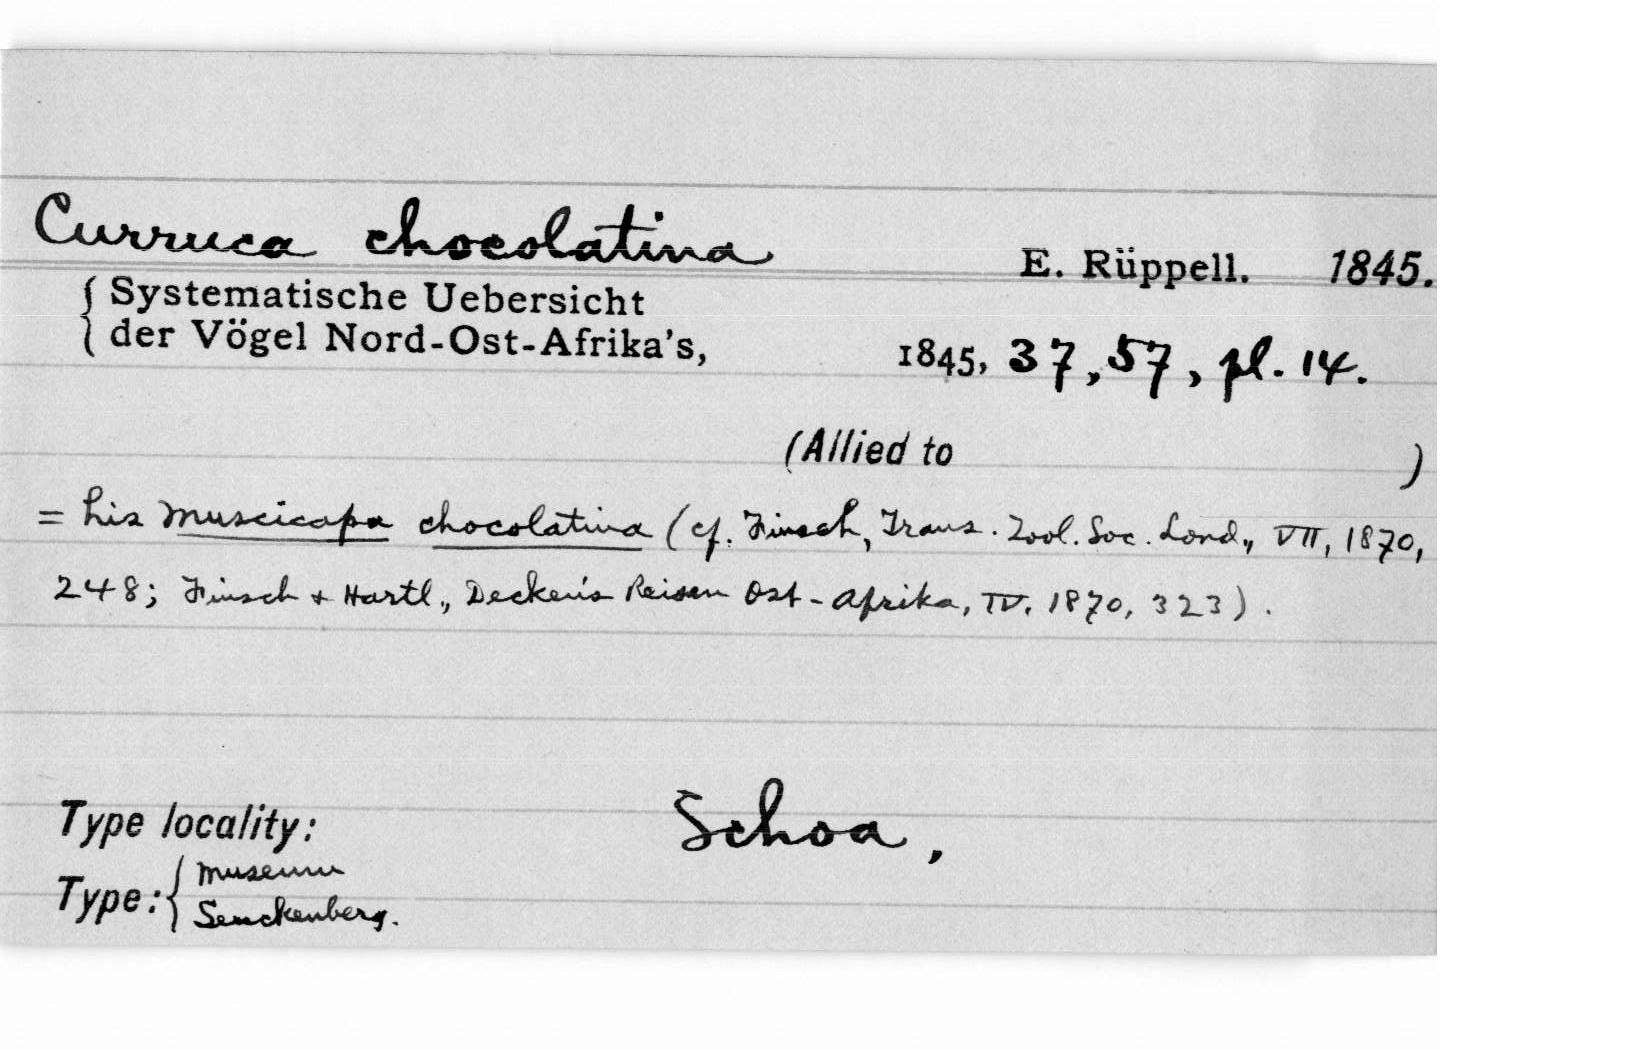 Curruca chocolatina E. Rüppell. 1845.
{ Systematische Uebersicht
der Vögel Nord-Ost-Afrika's, 1845, 37, 57, pl. 14.
(Allied to )
= his Muscicapa chocolatina (cf. Finsch, Trans. Zool. Soc. Lond., VII, 1870,
248; Finsch + Hartl., Decken's Reisen Ost-Afrika, IV, 1870, 323).
Type locality: Schoa,
Type: { Museum
Senckenberg.